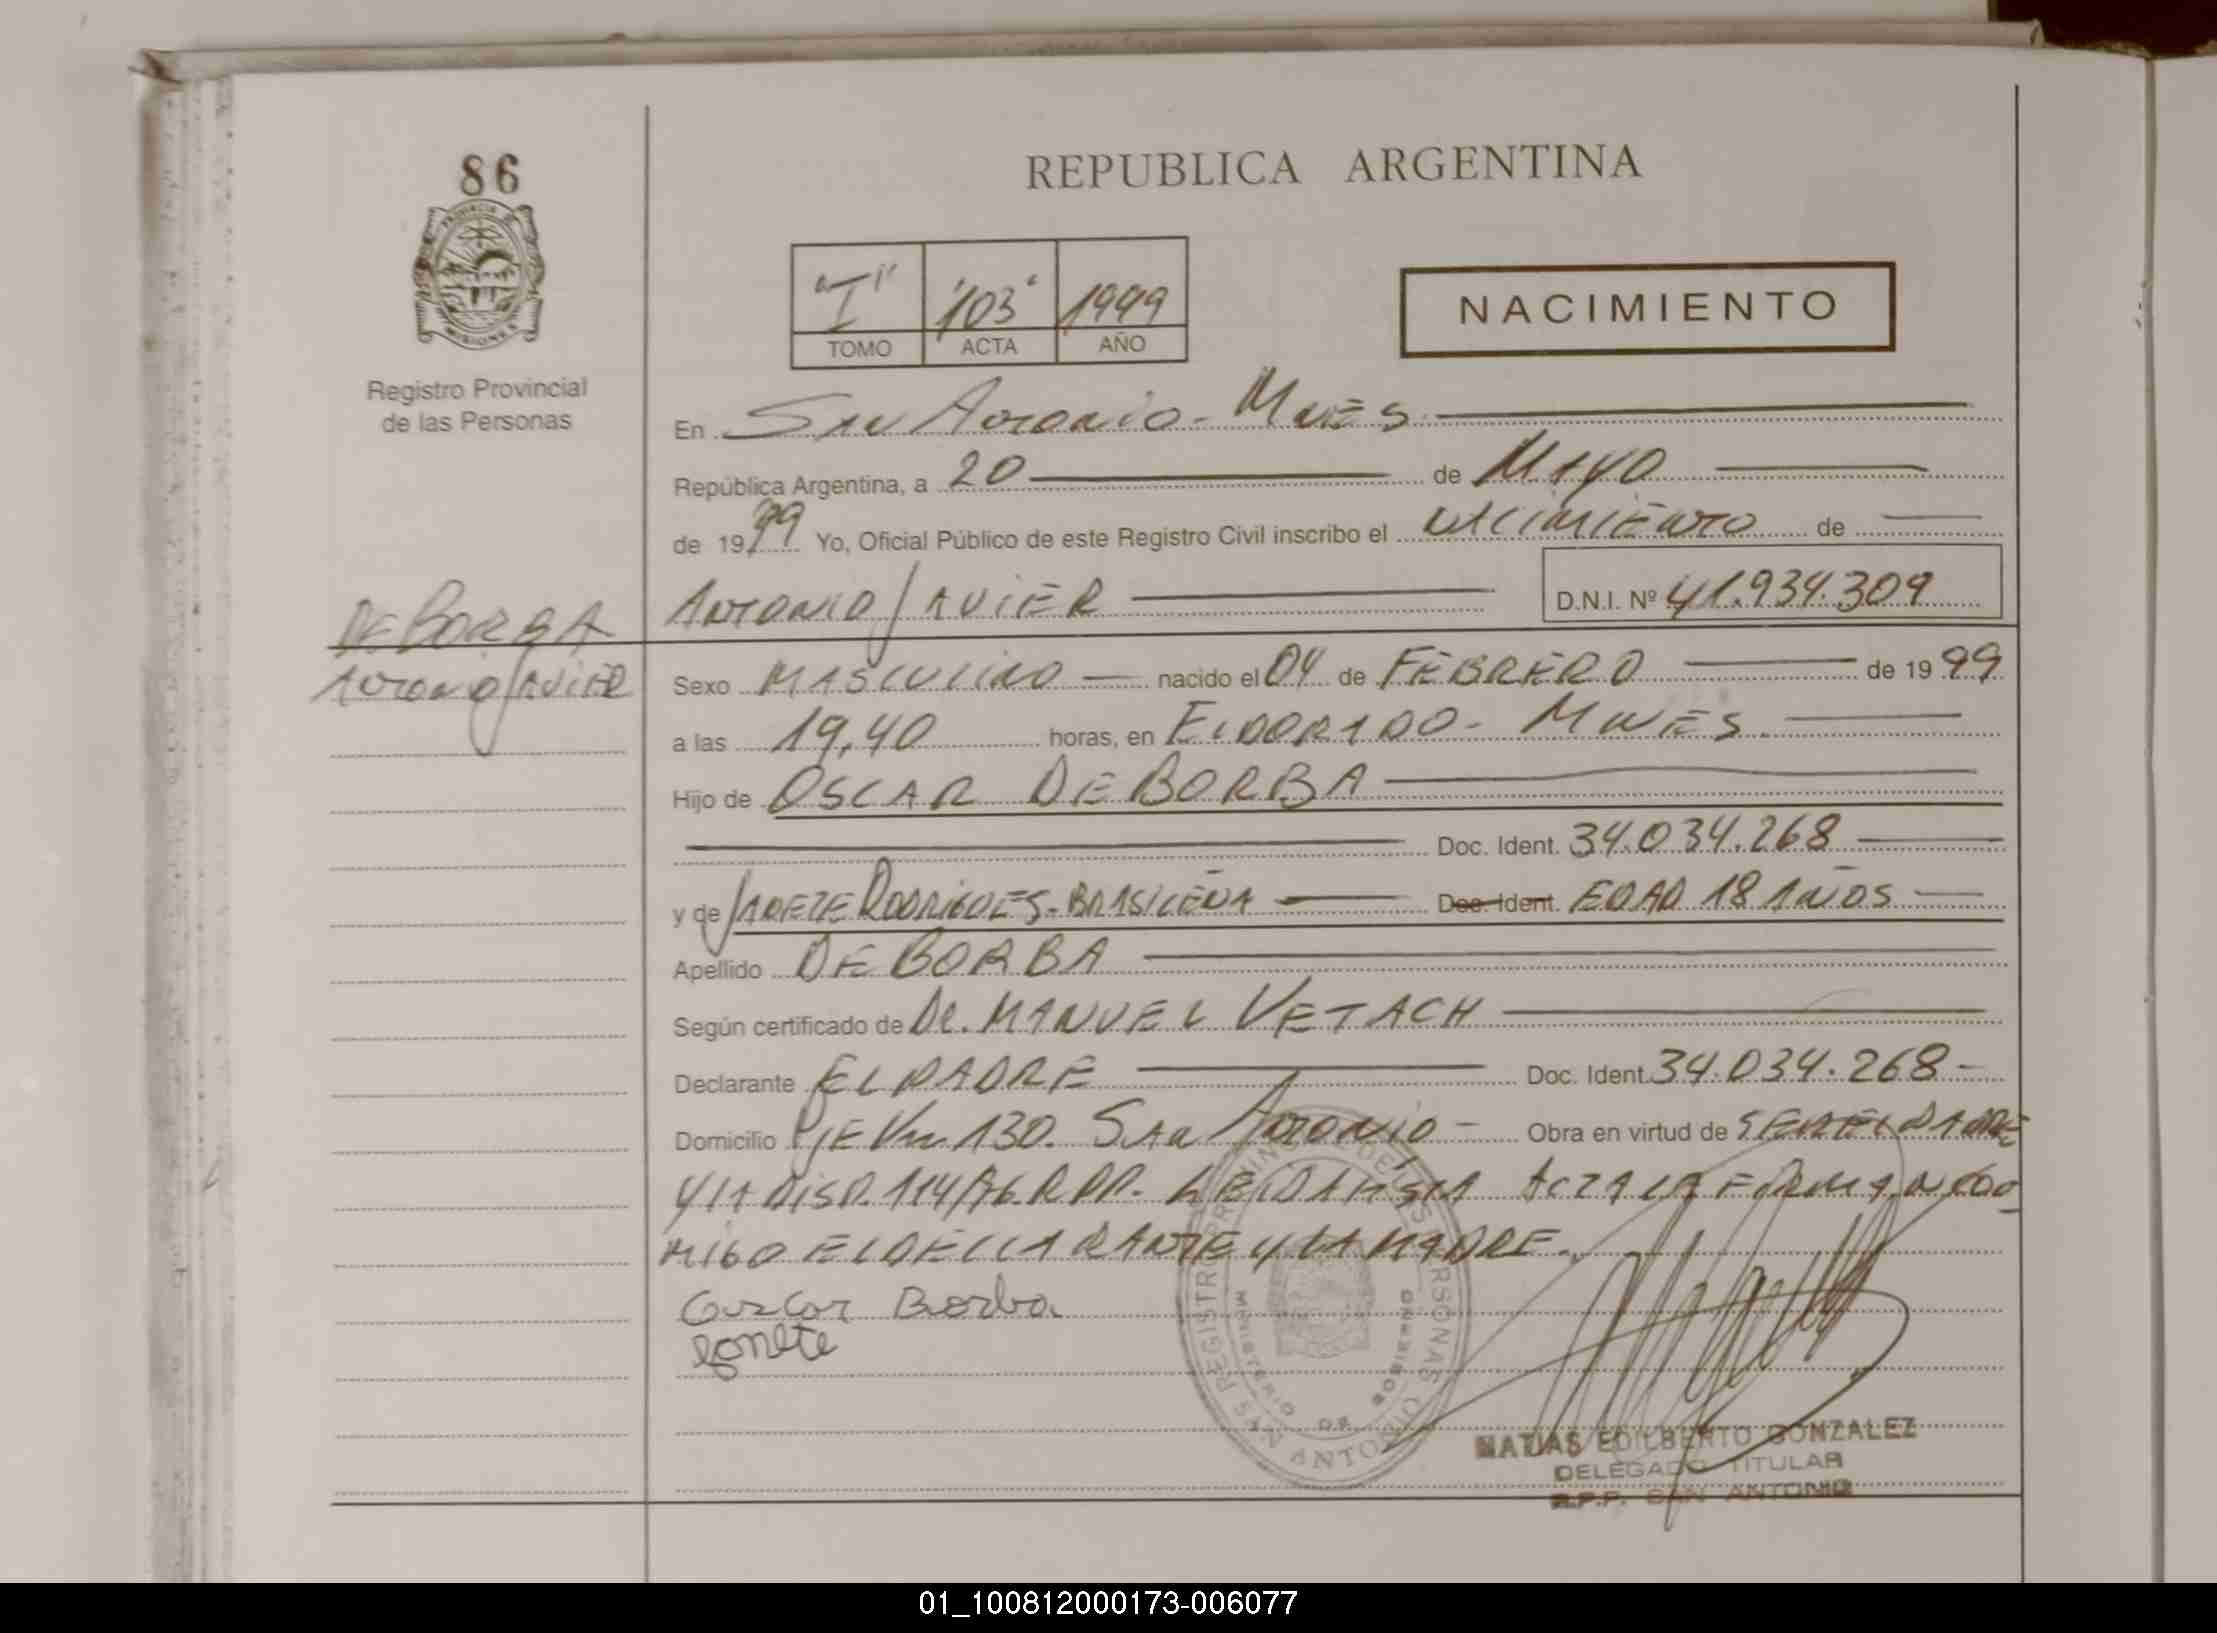 86
REPUBLICA ARGENTINA
"I" "103" 1999
TOMO ACTA AÑO
NACIMIENTO
Registro Provincial
de las Personas
En San Antonio - Mnes
República Argentina, a 20 de Mayo
de 1999 Yo, Oficial Público de este Registro Civil inscribo el NACIMIENTO de
DE BORBA
ANTONIO JAVIER D.N.I. Nº 41.934.309
ANTONIO JAVIER
Sexo MASCULINO nacido el 04 de FEBRERO de 1999
a las 19,40 horas, en ELDORADO - MNES.
Hijo de OSCAR DE BORBA
Doc. Ident. 34.034.268
y de RODRIGUES - BRASILEÑA Doc. Ident. EDAD 18 AÑOS
Apellido DE BORBA
Según certificado de Dr. MANUEL VETACH
Declarante EL PADRE Doc. Ident. 34.034.268-
Domicilio PJE Km 130. SAN ANTONIO - Obra en virtud de SER EL PADRE
Y LA DISP. 114/96. R.P.P. LEIDA MSMA ACTA LA FIRMAN CON
MIGO EL DECLARANTE Y LA MADRE.
Borba
REGISTRO PROVINCIAL DE LAS PERSONAS
MINISTERIO DE GOBIERNO
SAN ANTONIO
MATIAS EDILBERTO GONZALEZ
DELEGADO TITULAR
R.P.P. SAN ANTONIO
01_100812000173-006077